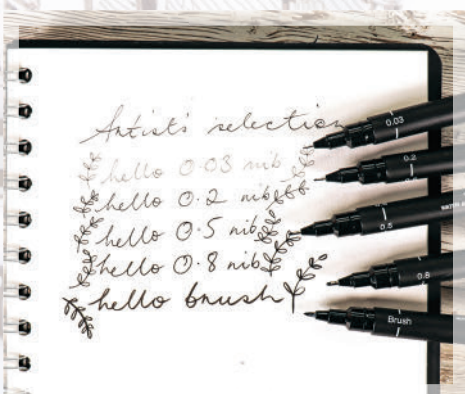 Artist's selection
hello 0.03 nib
hello 0.2 nib
hello 0.5 nib
hello 0.8 nib
hello brush
0.03
0.2
0.5
0.8
Brush